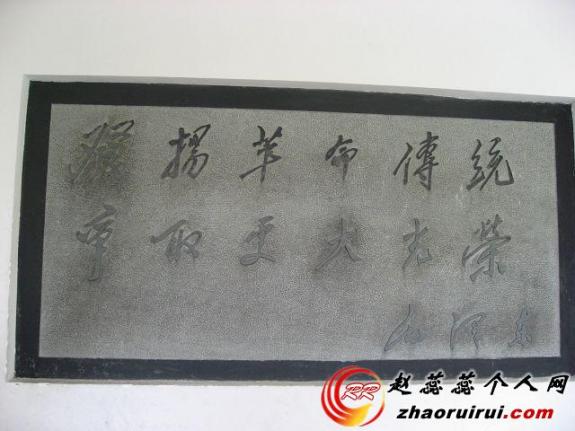 發揚革命傳統
爭取更大光榮
毛澤东
赵蕊蕊个人网
zhaoruirui.com